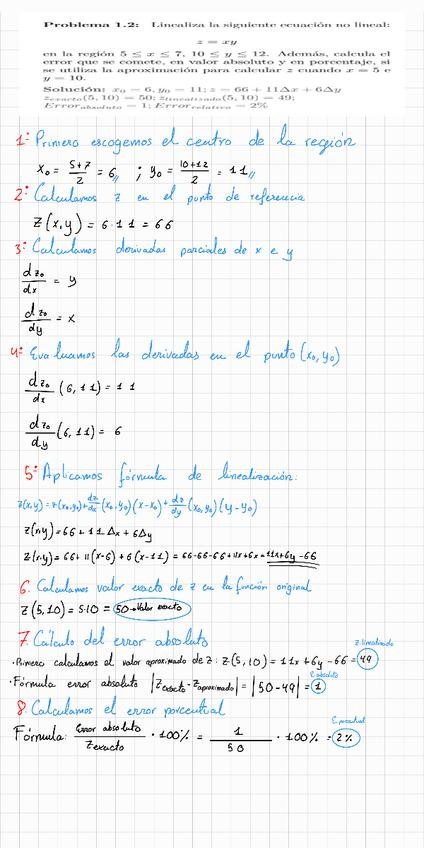 Problema 1.2: Linealiza la siguiente ecuación no lineal:
z = xy
en la región 5 ≤ x ≤ 7, 10 ≤ y ≤ 12. Además, calcula el
error que se comete, en valor absoluto y en porcentaje, si
se utiliza la aproximación para calcular z cuando x = 5 e
y = 10.
Solución: x₀ = 6, y₀ = 11; z = 66 + 11Δx + 6Δy
z_exacto(5, 10) = 50; z_linealizado(5, 10) = 49;
Error_absoluto = 1; Error_relativo = 2%
1º Primero escogemos el centro de la región
x₀ = (5+7)/2 = 6 ; y₀ = (10+12)/2 = 11
2º Calculamos z en el punto de referencia
Z(x,y) = 6·11 = 66
3º Calculamos derivadas parciales de x e y
dz₀/dx = y
dz₀/dy = x
4º Evaluamos las derivadas en el punto (x₀,y₀)
dz₀/dx (6,11) = 11
dz₀/dy (6,11) = 6
5º Aplicamos fórmula de linealización:
z(x,y) = z(x₀,y₀) + dz/dx (x₀,y₀)(x-x₀) + dz/dy (x₀,y₀)(y-y₀)
Z(x,y) = 66 + 11Δx + 6Δy
Z(x,y) = 66 + 11(x-6) + 6(x-11) = 66-66-66+11x+6x = 11x+6y-66
6. Calculamos valor exacto de z en la función original
Z(5,10) = 5·10 = 50→Valor exacto
7. Cálculo del error absoluto
z linealizado
·Primero calculamos el valor aproximado de z: Z(5,10) = 11x + 6y - 66 = 49
E absoluto
·Fórmula error absoluto |Z exacto - Z aproximado| = |50 - 49| = 1
8. Calculamos el error porcentual
E porcentual
Fórmula: Error absoluto / Z exacto · 100% = 1/50 · 100% = 2%